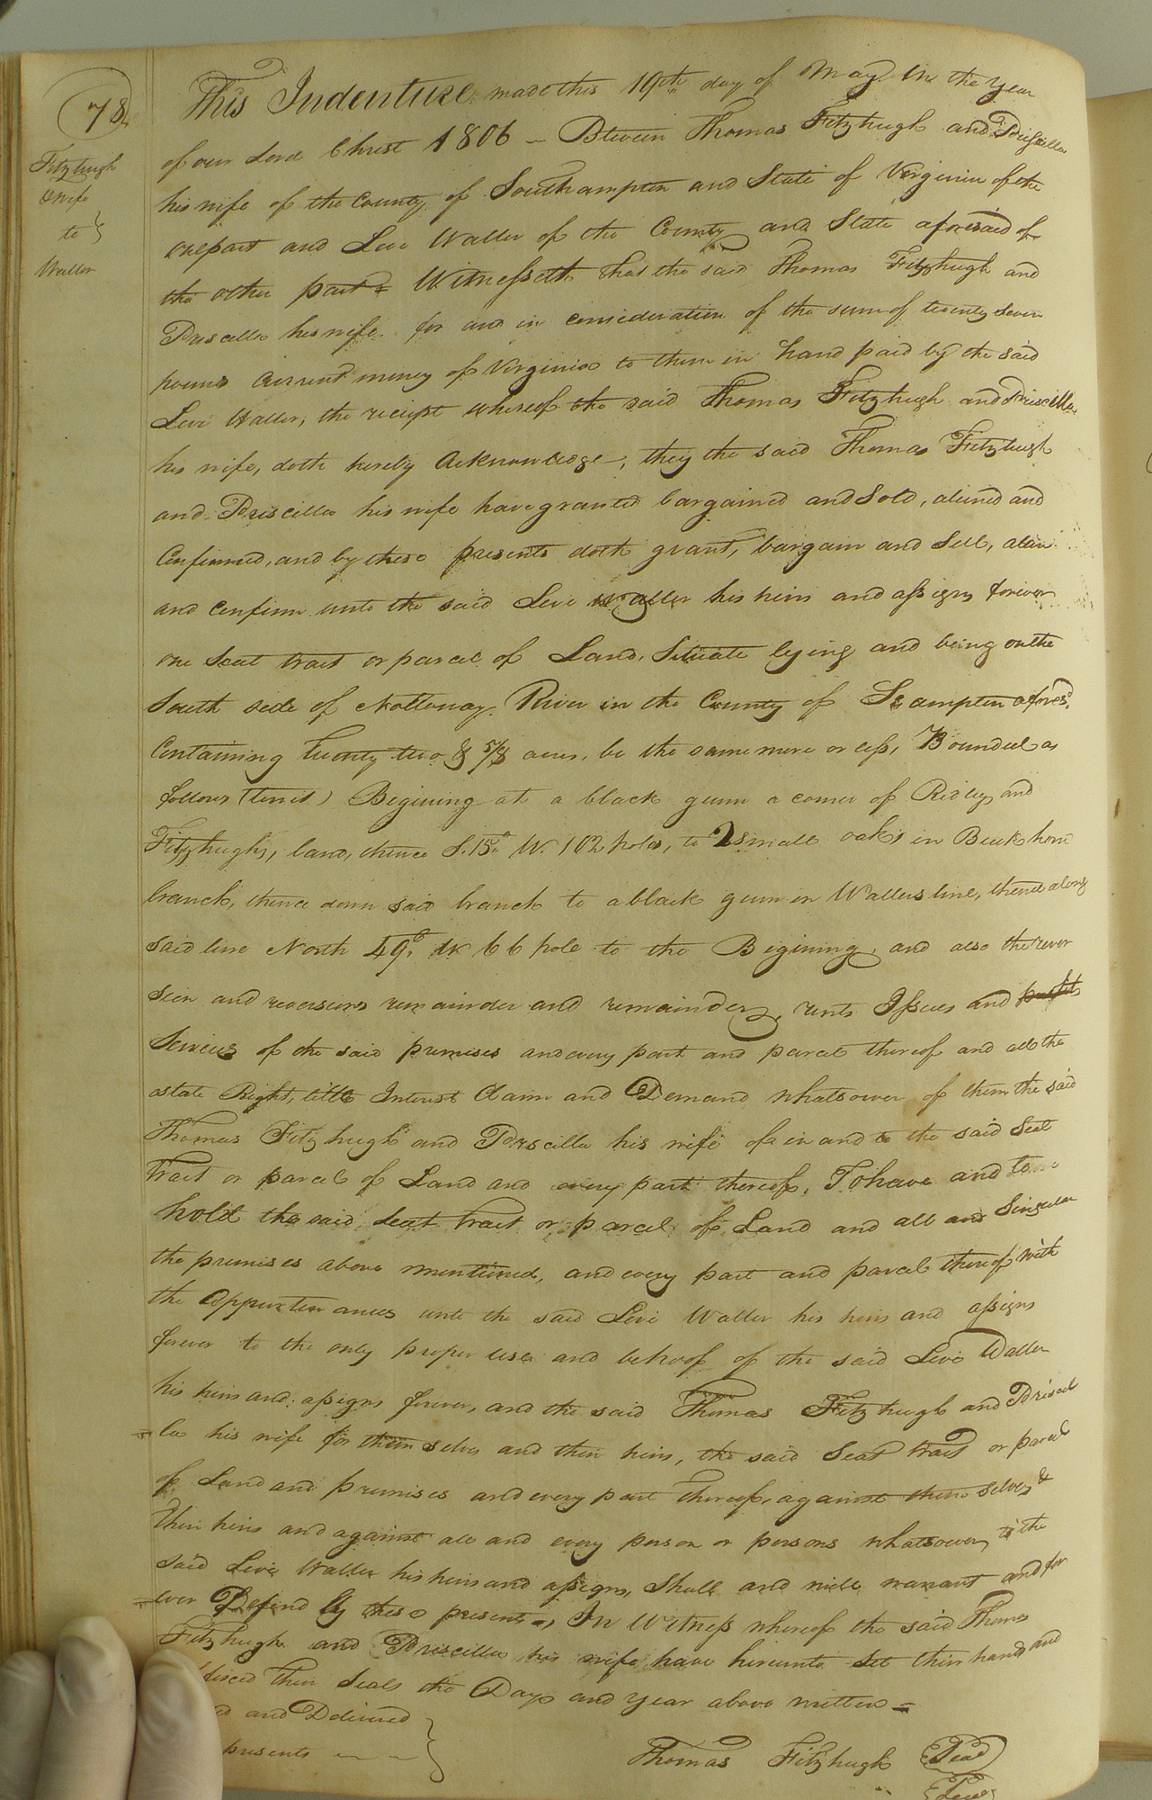 78
Fitzhugh
& wife
to }
Waller
This Indenture made this 19th day of May in the year
of our Lord Christ 1806 – Btween Thomas Fitzhugh and Priscilla
his wife of the County of Southampton and State of Virginia of the
onepart and Levi Waller of the County and State aforesaid of
the other part = Witnesseth that the said Thomas Fitzhugh and
Priscilla his wife for and in consideration of the sum of twenty seven
pounds Current money of Virginia to them in hand paid by the said
Levi Waller, the reciept whereof the said Thomas Fitzhugh and Priscilla
his wife, doth hereby Acknowledge, they the said Thomas Fitzhugh
and Priscilla his wife have granted bargained and Sold, aliened and
Confirmed, and by these presents doth grant, bargain and Sell, alien
and confirm unto the said Levi Waller his heirs and assigns forever
one Seat tract or parcel of Land, Situate lying and being on the
South side of Nottoway River in the County of So ampton afores.d
Containing twenty two & 5/8 acres, be the same more or less, Bounded as
follows (towit) Begining at a black gum a corner of Ridley and
Fitzhughs, land, thence S. 15° W. 102 poles, to 2 small oaks in Buckhorn
branch, thence down said branch to a black gum in Wallers line, thence along
said line North 49° W 66 pole to the Begining, and also the rever
sion and reversions remainder and remainders, rents Issues and profits
Services of the said premises and every part and parcel thereof and all the
astate Right, title Interest Claim and Demand whatsoever of them the said
Thomas Fitzhugh and Priscilla his wife of in and to the said Seat
tract or parcel of Land and every part thereof, To have and to
hold the said Seat tract or parcel of Land and all and Singular
the premises above mentioned, and every part and parcel thereof with
the appurtenances unto the said Levi Waller his heirs and assigns
forever to the only proper use and behoof of the said Levi Waller
his heirs and assigns forever, and the said Thomas Fitzhugh and Priscil
=la his wife for themselves and their heirs, the said Seat tract or parcel
of Land and premises and every part thereof, against them selves &
their heirs and against all and every person or persons whatsoever, to the
said Levi Waller his heirs and assigns, Shall and will warrant and for
=ever Defend by these presents =, In Witness whereof the said Thomas
Fitzhugh and Priscilla his wife have hereunto Set their hands and
their Seals the Day and year above written =
and Delivered }
presents
Thomas Fitzhugh (Seal)
(Seal)